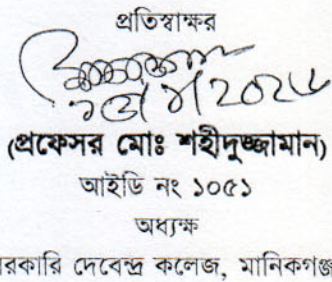 প্রতিস্বাক্ষর
(প্রফেসর মোঃ শহীদুজ্জামান)
আইডি নং ১০৫১
অধ্যক্ষ
সরকারি দেবেন্দ্র কলেজ, মানিকগঞ্জ